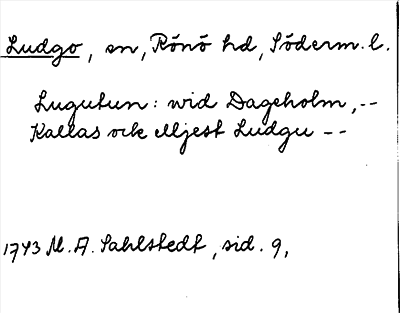 Ludgo, sn, Rönö hd, Söderm. l.
Lugutun: wid Dageholm, --
Kallas ock Mjest Ludgu --
1743 M. A. Sahlstedt, sid. 9,